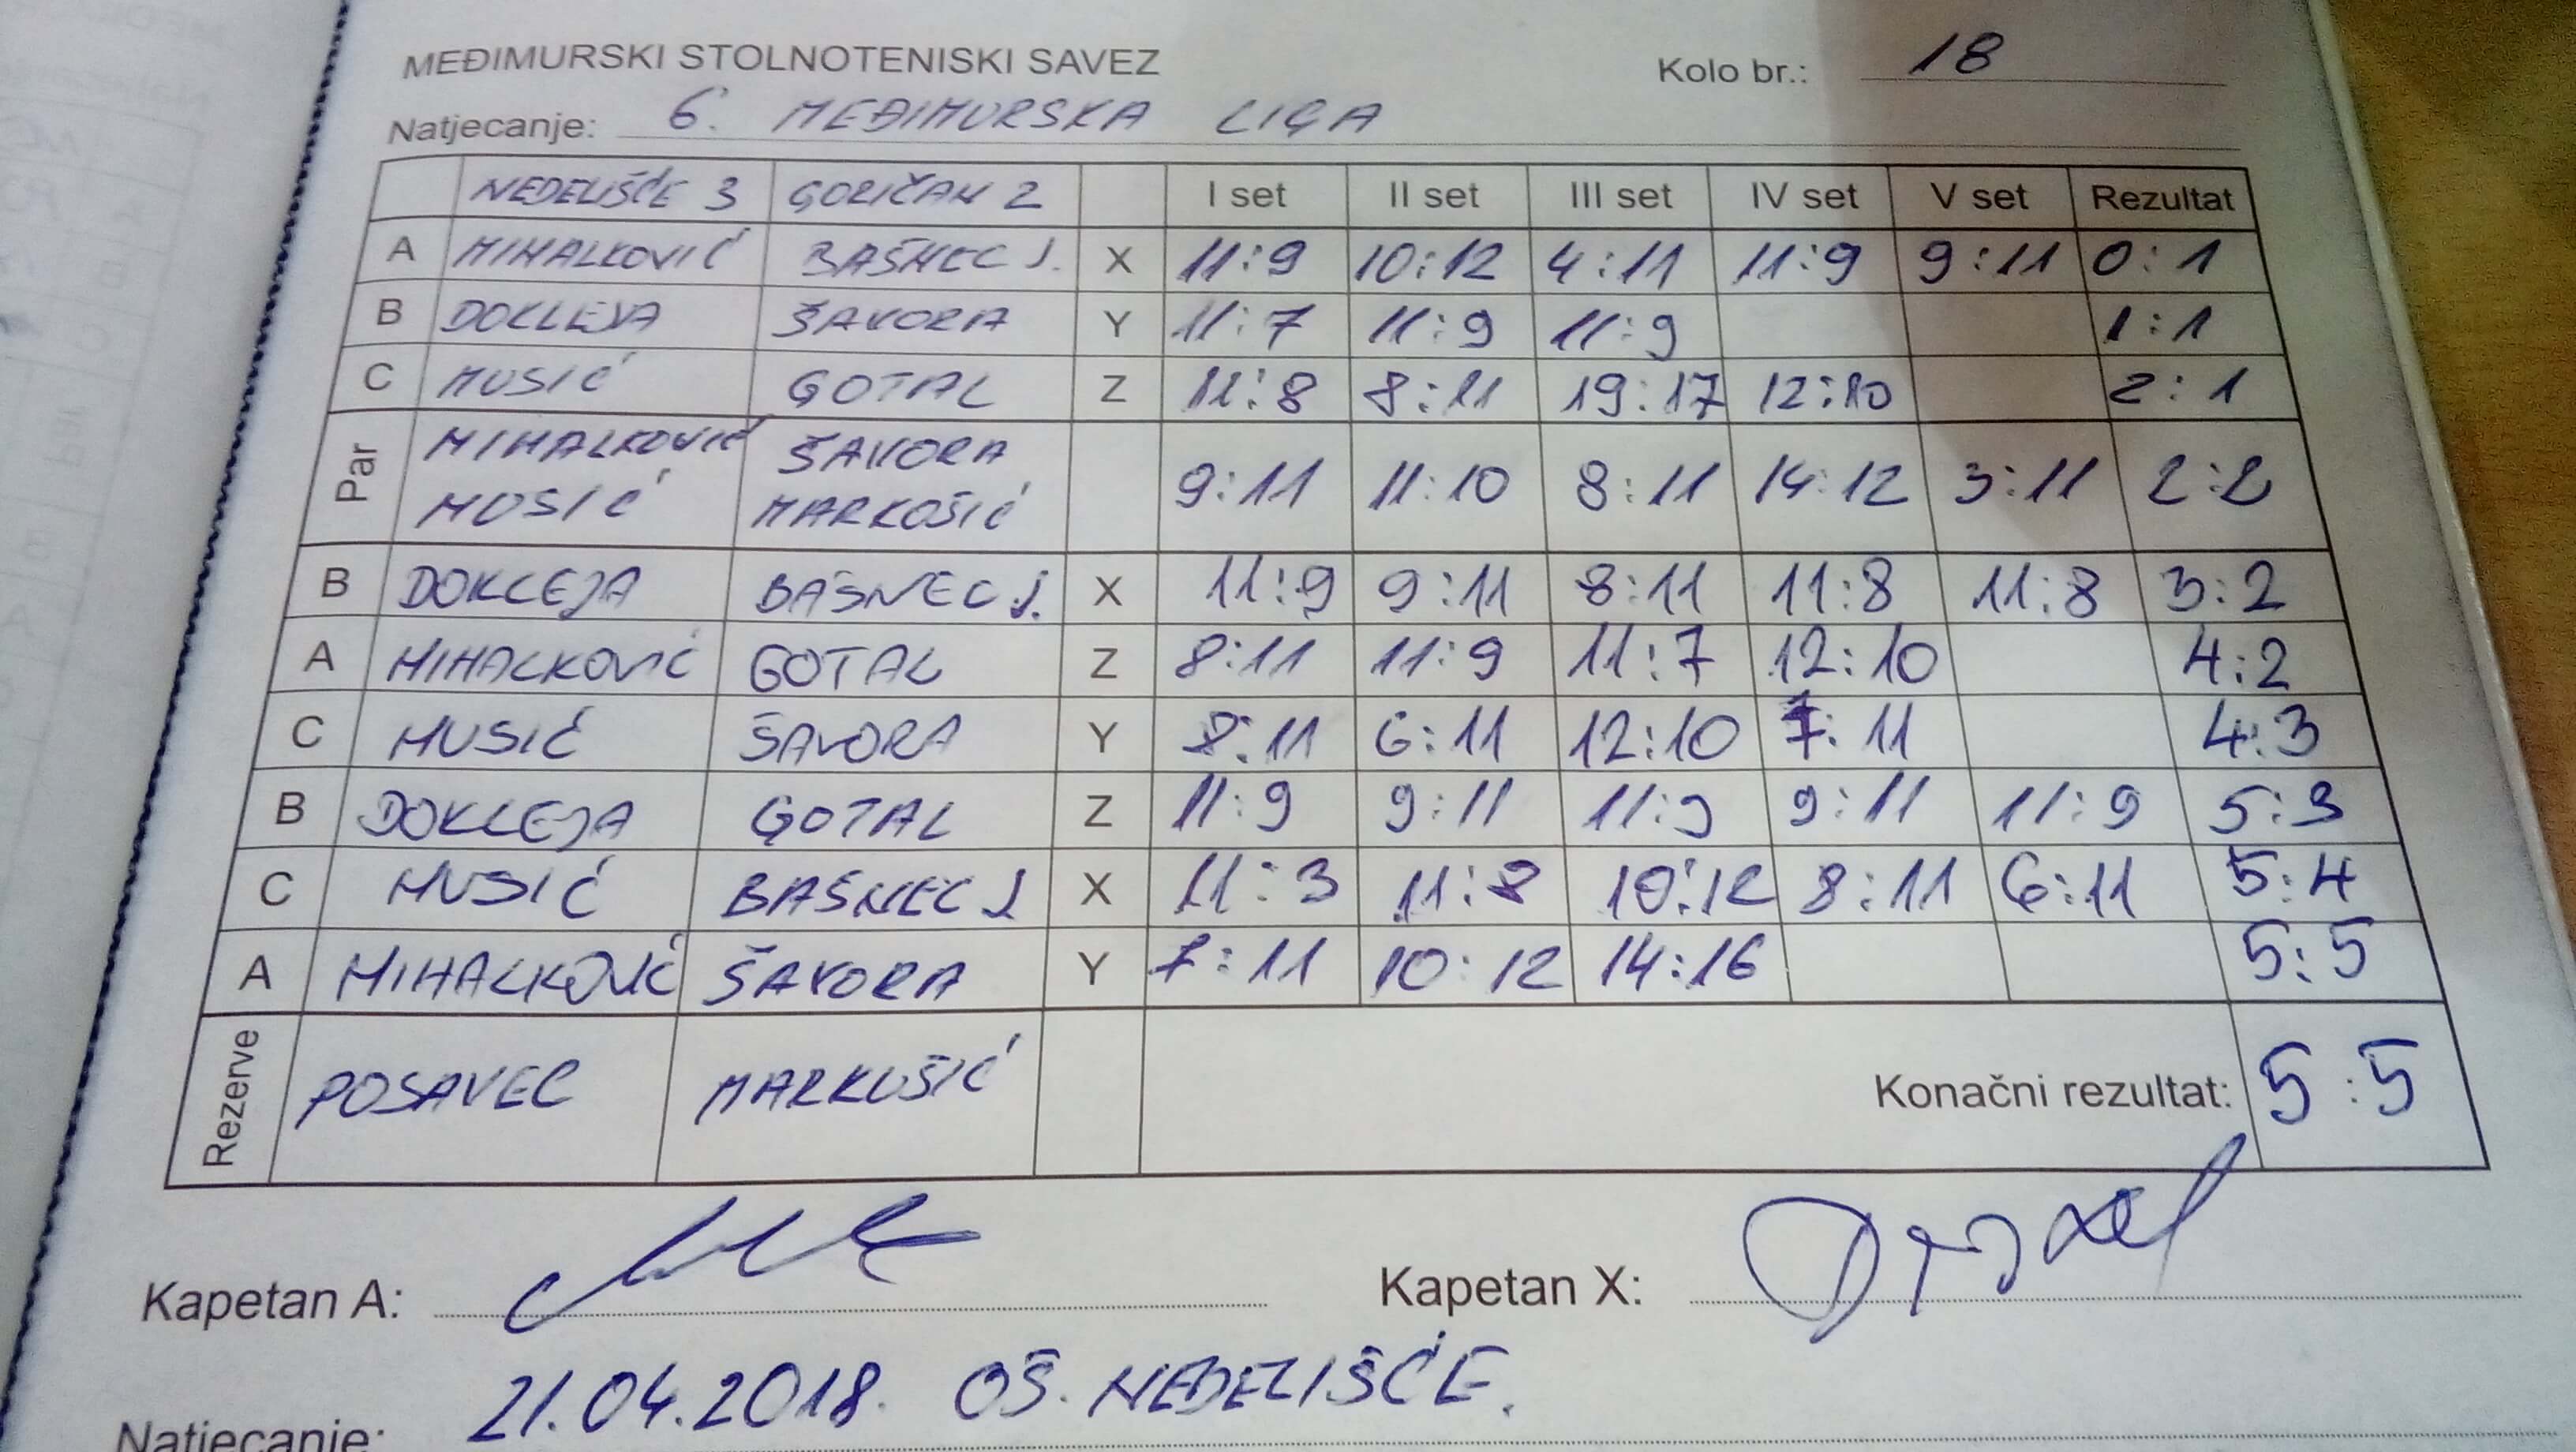 MEĐIMURSKI STOLNOTENISKI SAVEZ Kolo br.: 18
Natjecanje: 6. MEĐIMURSKA LIGA
NEDELIŠĆE 3 GORIČAN 2 I set II set III set IV set V set Rezultat
A MIHALKOVIĆ BAŠNEC J. X 11:9 10:12 4:11 11:9 9:11 0:1
B DOKLEJA ŠAVORA Y 11:7 11:9 11:9 1:1
C MUSIĆ GOTAL Z 11:8 8:11 19:17 12:10 2:1
Par MIHALKOVIĆ ŠAVORA
MUSIĆ MARKOŠIĆ 9:11 11:10 8:11 14:12 3:11 2:2
B DOKLEJA BAŠNEC J. X 11:9 9:11 8:11 11:8 11:8 3:2
A MIHALKOVIĆ GOTAL Z 8:11 11:9 11:7 12:10 4:2
C MUSIĆ ŠAVORA Y 8:11 6:11 12:10 7:11 4:3
B DOKLEJA GOTAL Z 11:9 9:11 11:9 9:11 11:9 5:3
C MUSIĆ BAŠNEC J X 11:3 11:8 10:12 8:11 6:11 5:4
A MIHALKOVIĆ ŠAVORA Y 7:11 10:12 14:16 5:5
Rezerve POSAVEC MARKUŠIĆ Konačni rezultat: 5:5
Kapetan A: Kapetan X:
21.04.2018. OŠ. NEDELIŠĆE.
Natjecanje: